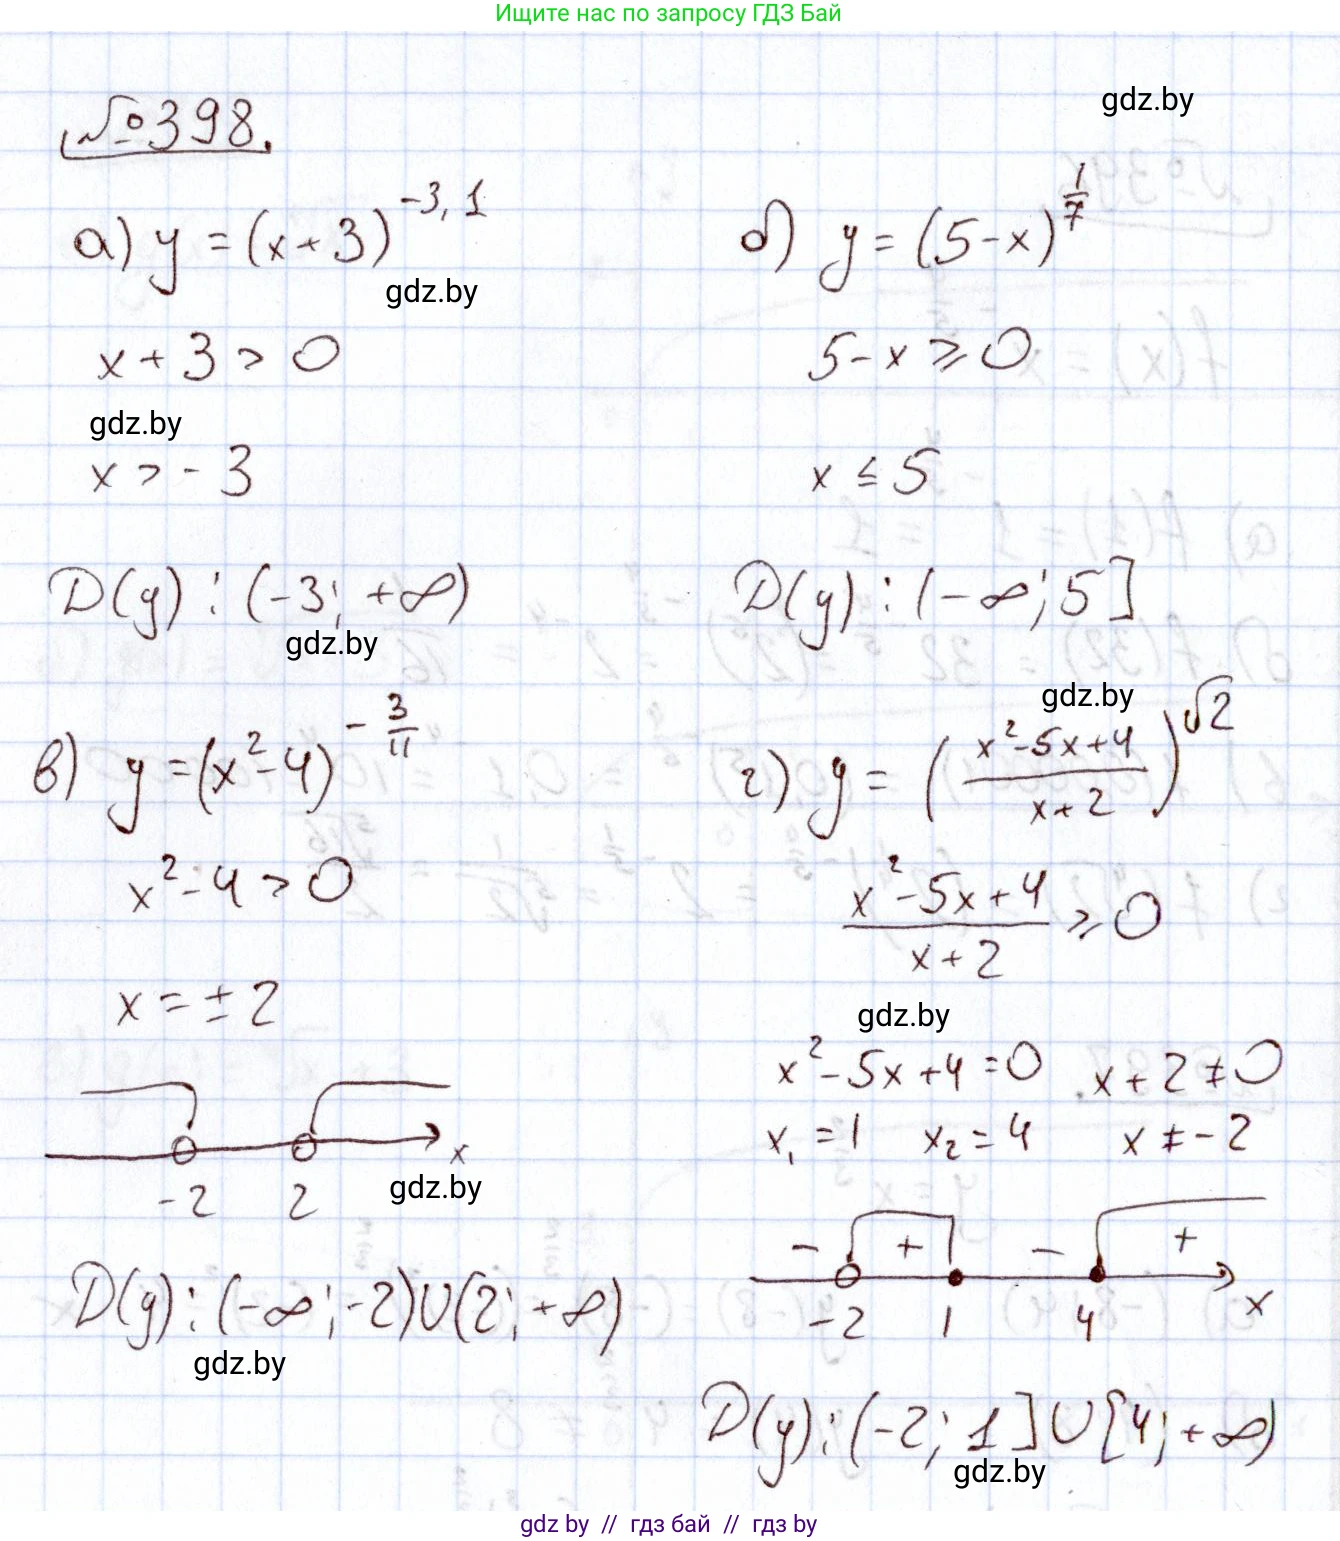 Ищите нас по запросу ГДЗ Бай
gdz.by
№398.
а) y = (x+3)^{-3,1}
gdz.by
x + 3 > 0
gdz.by
x > -3
D(y) : (-3; +∞)
gdz.by
б) y = (5-x)^{1/7}
5-x ⩾ 0
x ≤ 5
D(y) : (-∞; 5]
в) y = (x²-4)^{-3/11}
x²-4 > 0
x = ±2
x
-2 2
gdz.by
D(y) : (-∞; -2)∪(2; +∞)
gdz.by
gdz.by
г) y = ((x²-5x+4)/(x+2))^{√2}
(x²-5x+4)/(x+2) ⩾ 0
gdz.by
x²-5x+4=0 x+2≠0
x₁=1 x₂=4 x≠-2
- + - +
-2 1 4 x
D(y) : (-2; 1]∪[4; +∞)
gdz.by
gdz by // гдз бай // гдз by